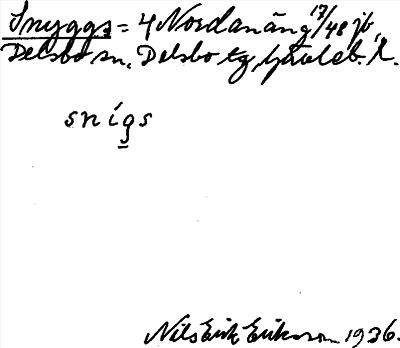 Snyggs = 4 Nordanäng 17/48 jb,
Delsbo sn, Delsbo tg, Gävleb. l.
snígs
Nils Erik Eriksson 1936.